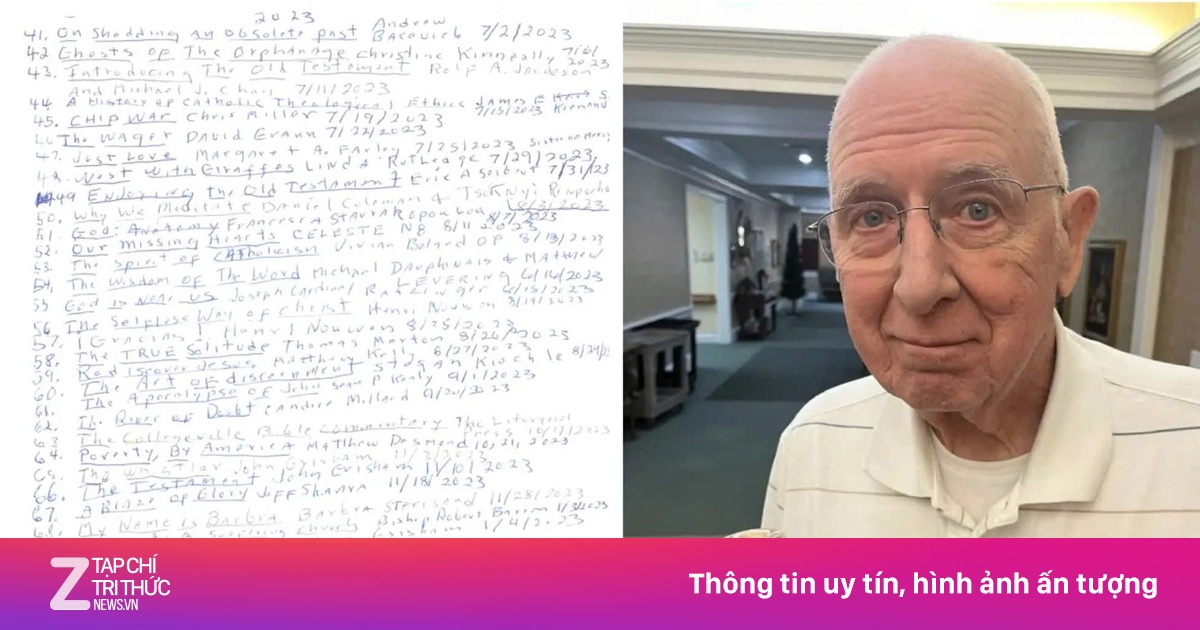 2023
41. On Shedding an Obsolete Past Andrew
Bacevich 7/2/2023
42 Ghosts of The Orphanage Christine Kenneally
2023
43. Introducing The Old Testament Rolf A. Jacobson
And Michael J. Chan 7/11/2023
44 A History of Catholic Theological Ethics James F
7/15/2023
45. CHIP WAR Chris Miller 7/19/2023
The Wager David Grann 7/22/2023
47. Just Love Margaret A. Farley 7/25/2023 Sister of Mercy
West With Giraffes Linda Rutledge 7/29/2023
49 Enjoying the Old Testament Eric A Seibert 7/31/23
50. Why We Meditate Daniel Goleman & Tsoknyi Rinpoche
51. God: Anatomy Francesca Stavrakopoulou 8/7/2023
52. Our Missing Hearts CELESTE NG 8/11 2023
53. The Spirit of Catholicism Vivian Boland OP 8/13/2023
54. The Wisdom OF The Word Michael Dauphinais & Matthew
LEVERING
55 God is Near Us Joseph Cardinal Ratzinger 8/18/2023
56. The Selfless Way of Christ Henri Nouwen 8/19/2023
57. Gracias Henri Nouwen 8/25/2023
58. The TRUE Solitude Thomas Merton 8/26/2023
59. Rediscover Jesus Matthew Kelly 8/27/2023
60. The Art of discernment Stefan Kiechle
61. The Apocalypse of John Sean P Kealy 9/1/2023
62. River of Doubt Candice Millard 9/20/2023
63 The Collegeville Bible Commentary The Liturgical
Press
64. Poverty, By America Matthew Desmond 10/21/2023
65. The Whistler John Grisham 11/3/2023
66. The Testament John Grisham 11/10/2023
67. A Blaze of Glory Jeff Shaara 11/18/2023
68. My Name is Barbra Barbra Streisand 11/28/2023
Church Bishop Robert Barron
Z TẠP CHÍ
TRI THỨC
NEWS.VN
Thông tin uy tín, hình ảnh ấn tượng